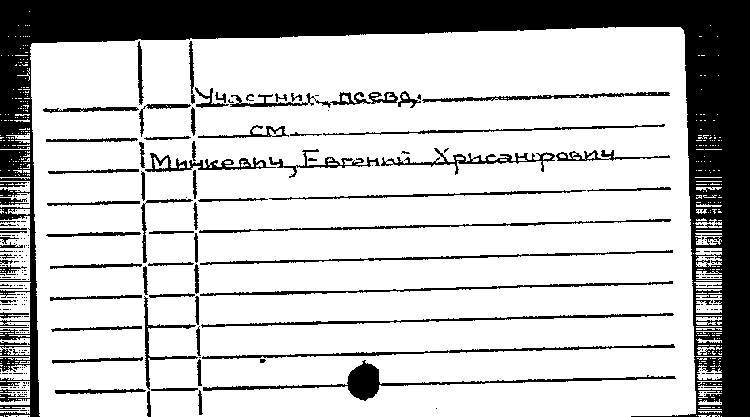 Участник, псевд.
см.
Минкевич, Евгений Хрисанфович